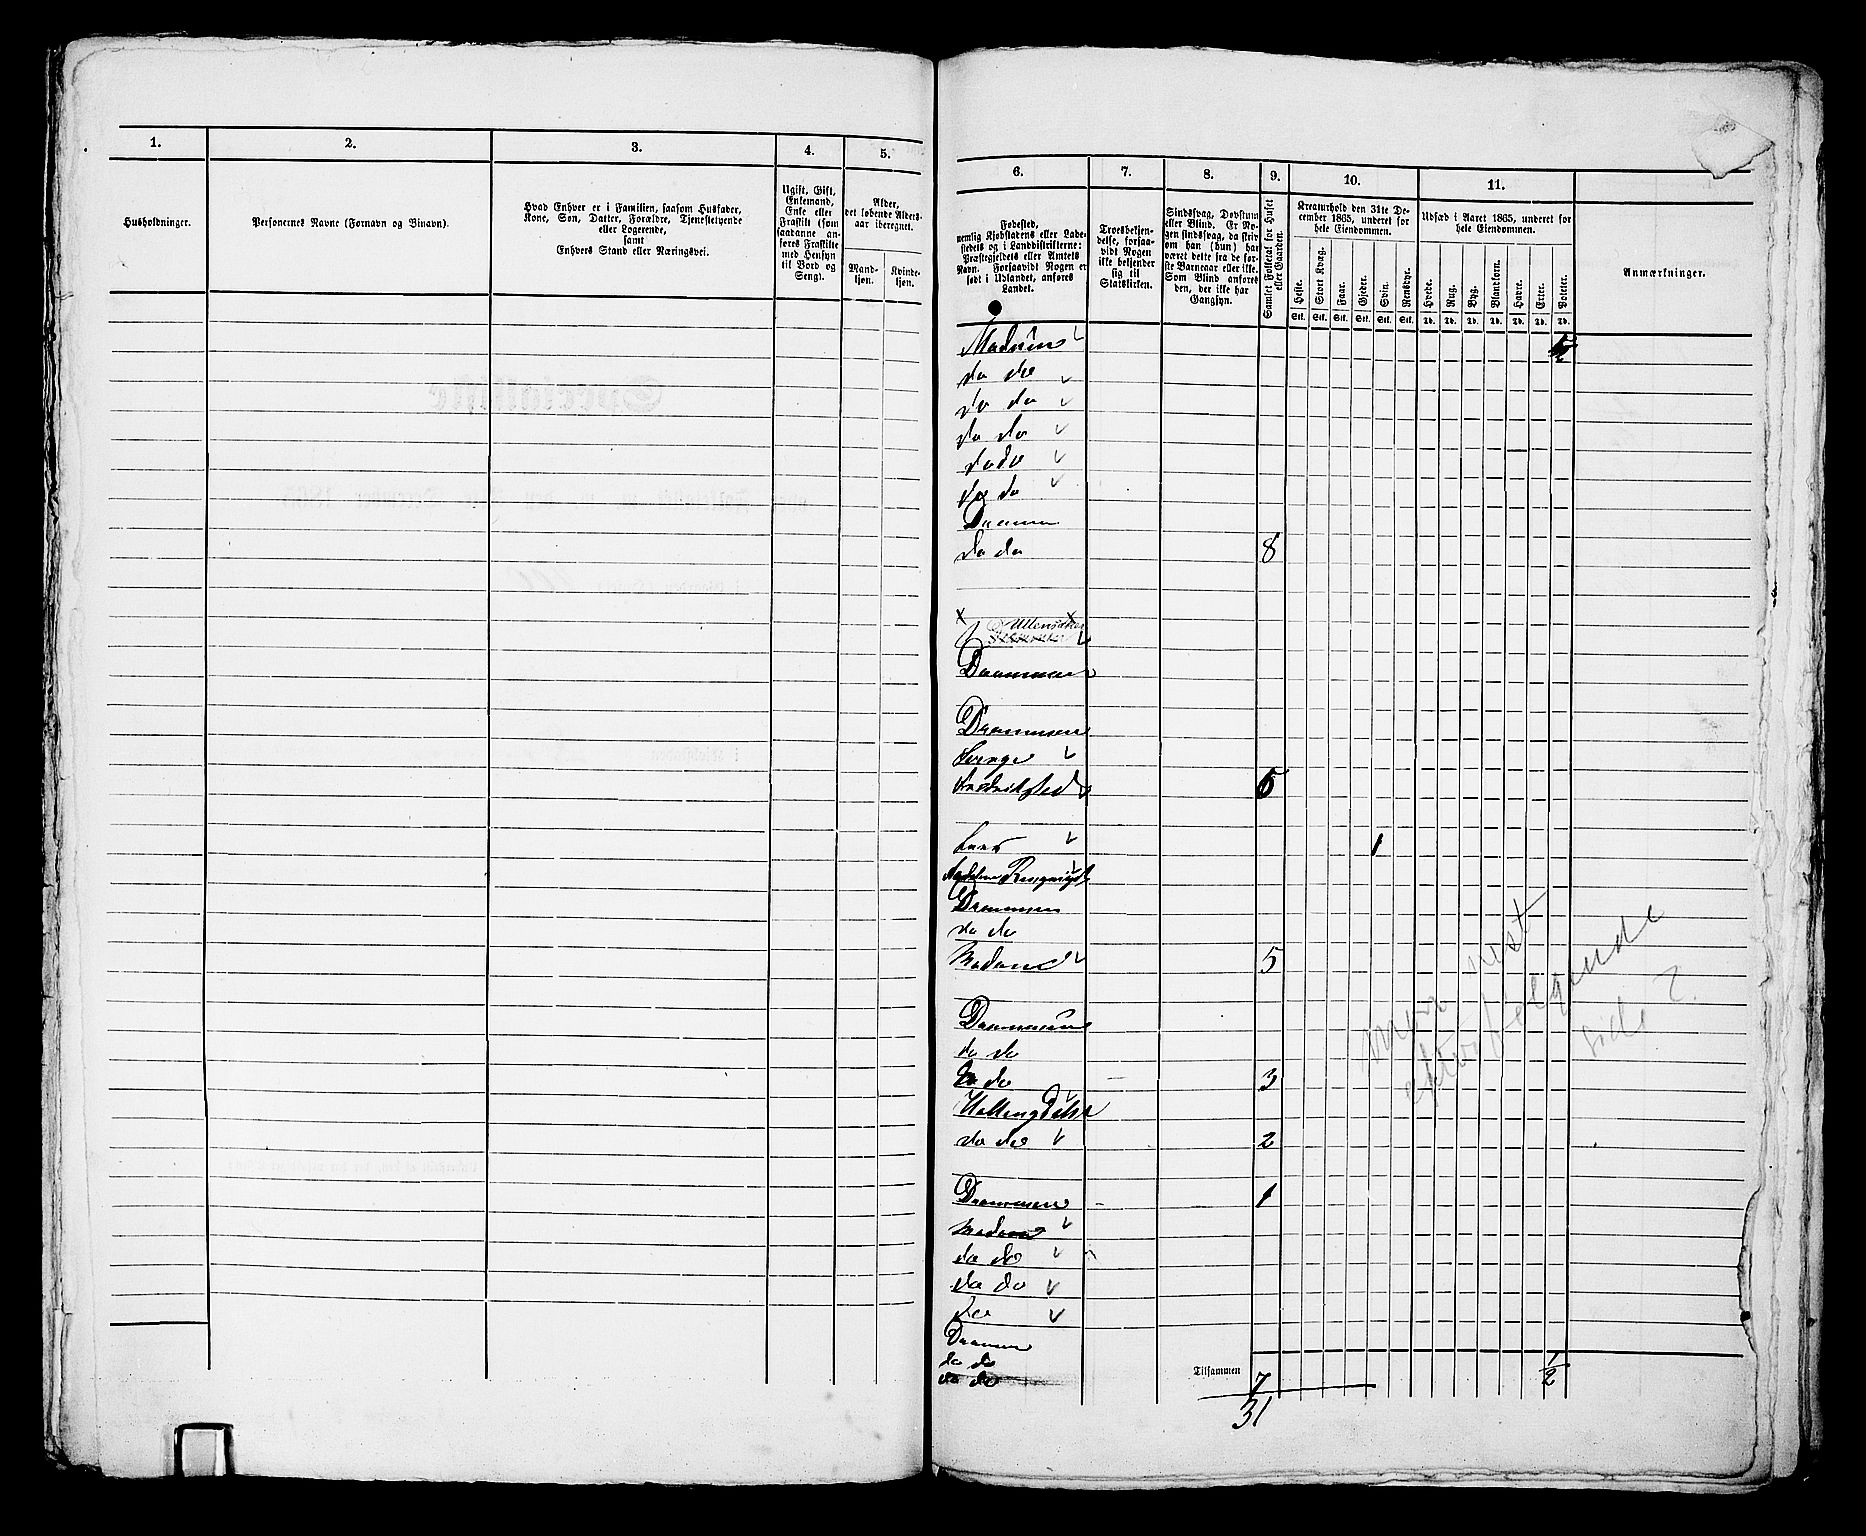 1.
2.
3.
4.
5.
Husholdninger.
Personernes Navne (Fornavn og Binavn).
Hvad Enhver er i Familien, saasom Husfader,
Kone, Søn, Datter, Forældre, Tjenestetyende
eller Logerende,
samt
Enhvers Stand eller Næringsvei.
Ugift, Gift,
Enkemand,
Enke eller
Fraskilt (som
saadanne an-
føres Fraskilte
med Hensyn
til Bord og
Seng).
Alder,
det løbende Alders-
aar iberegnet.
Mand-
kjøn.
Kvinde-
kjøn.
6.
7.
8.
9.
10.
11.
Fødested,
nemlig Kjøbstadens eller Lade-
stedets og i Landdistrikterne:
Præstegjeldets eller Amtets
Navn. Forsaavidt Nogen er
født i Udlandet, anføres
Landet.
Troesbekjen-
delse, forsaa-
vidt Nogen
ikke bekjender
sig til
Statskirken.
Sindssvag, Døvstum
eller Blind. Er No-
gen sindssvag, da skriv
om han (hun) har
været dette fra de før-
ste Barneaar eller ikke.
Som Blind anføres
den, der ikke har
Gangsyn.
Samlet Folketal for Huset
eller Gaarden.
Kreaturhold den 31te De-
cember 1865, underet for
hele Eiendommen.
Heste.
Stort Kvæg.
Faar.
Gjeder.
Svin.
Rensdyr.
Stk. Stk. Stk. Stk. Stk. Stk.
Udsæd i Aaret 1865, underet for
hele Eiendommen.
Hvede.
Rug.
Byg.
Blandkorn.
Havre.
Erter.
Poteter.
Td. Td. Td. Td. Td. Td. Td.
Anmærkninger.
do do
do do
do do
do do
do do
do do 8
Ullensaker
Drammen
Drammen
Fredrikstad
1
Ringerige
Drammen
do do
Modum 5
Drammen
do do
do 3
Hallingdal
do do 2
Drammen 1
Modum
do do
do do
do
do do
do do
Tilsammen 7 1/2
31
mer nest
efterfølgende
side 2.